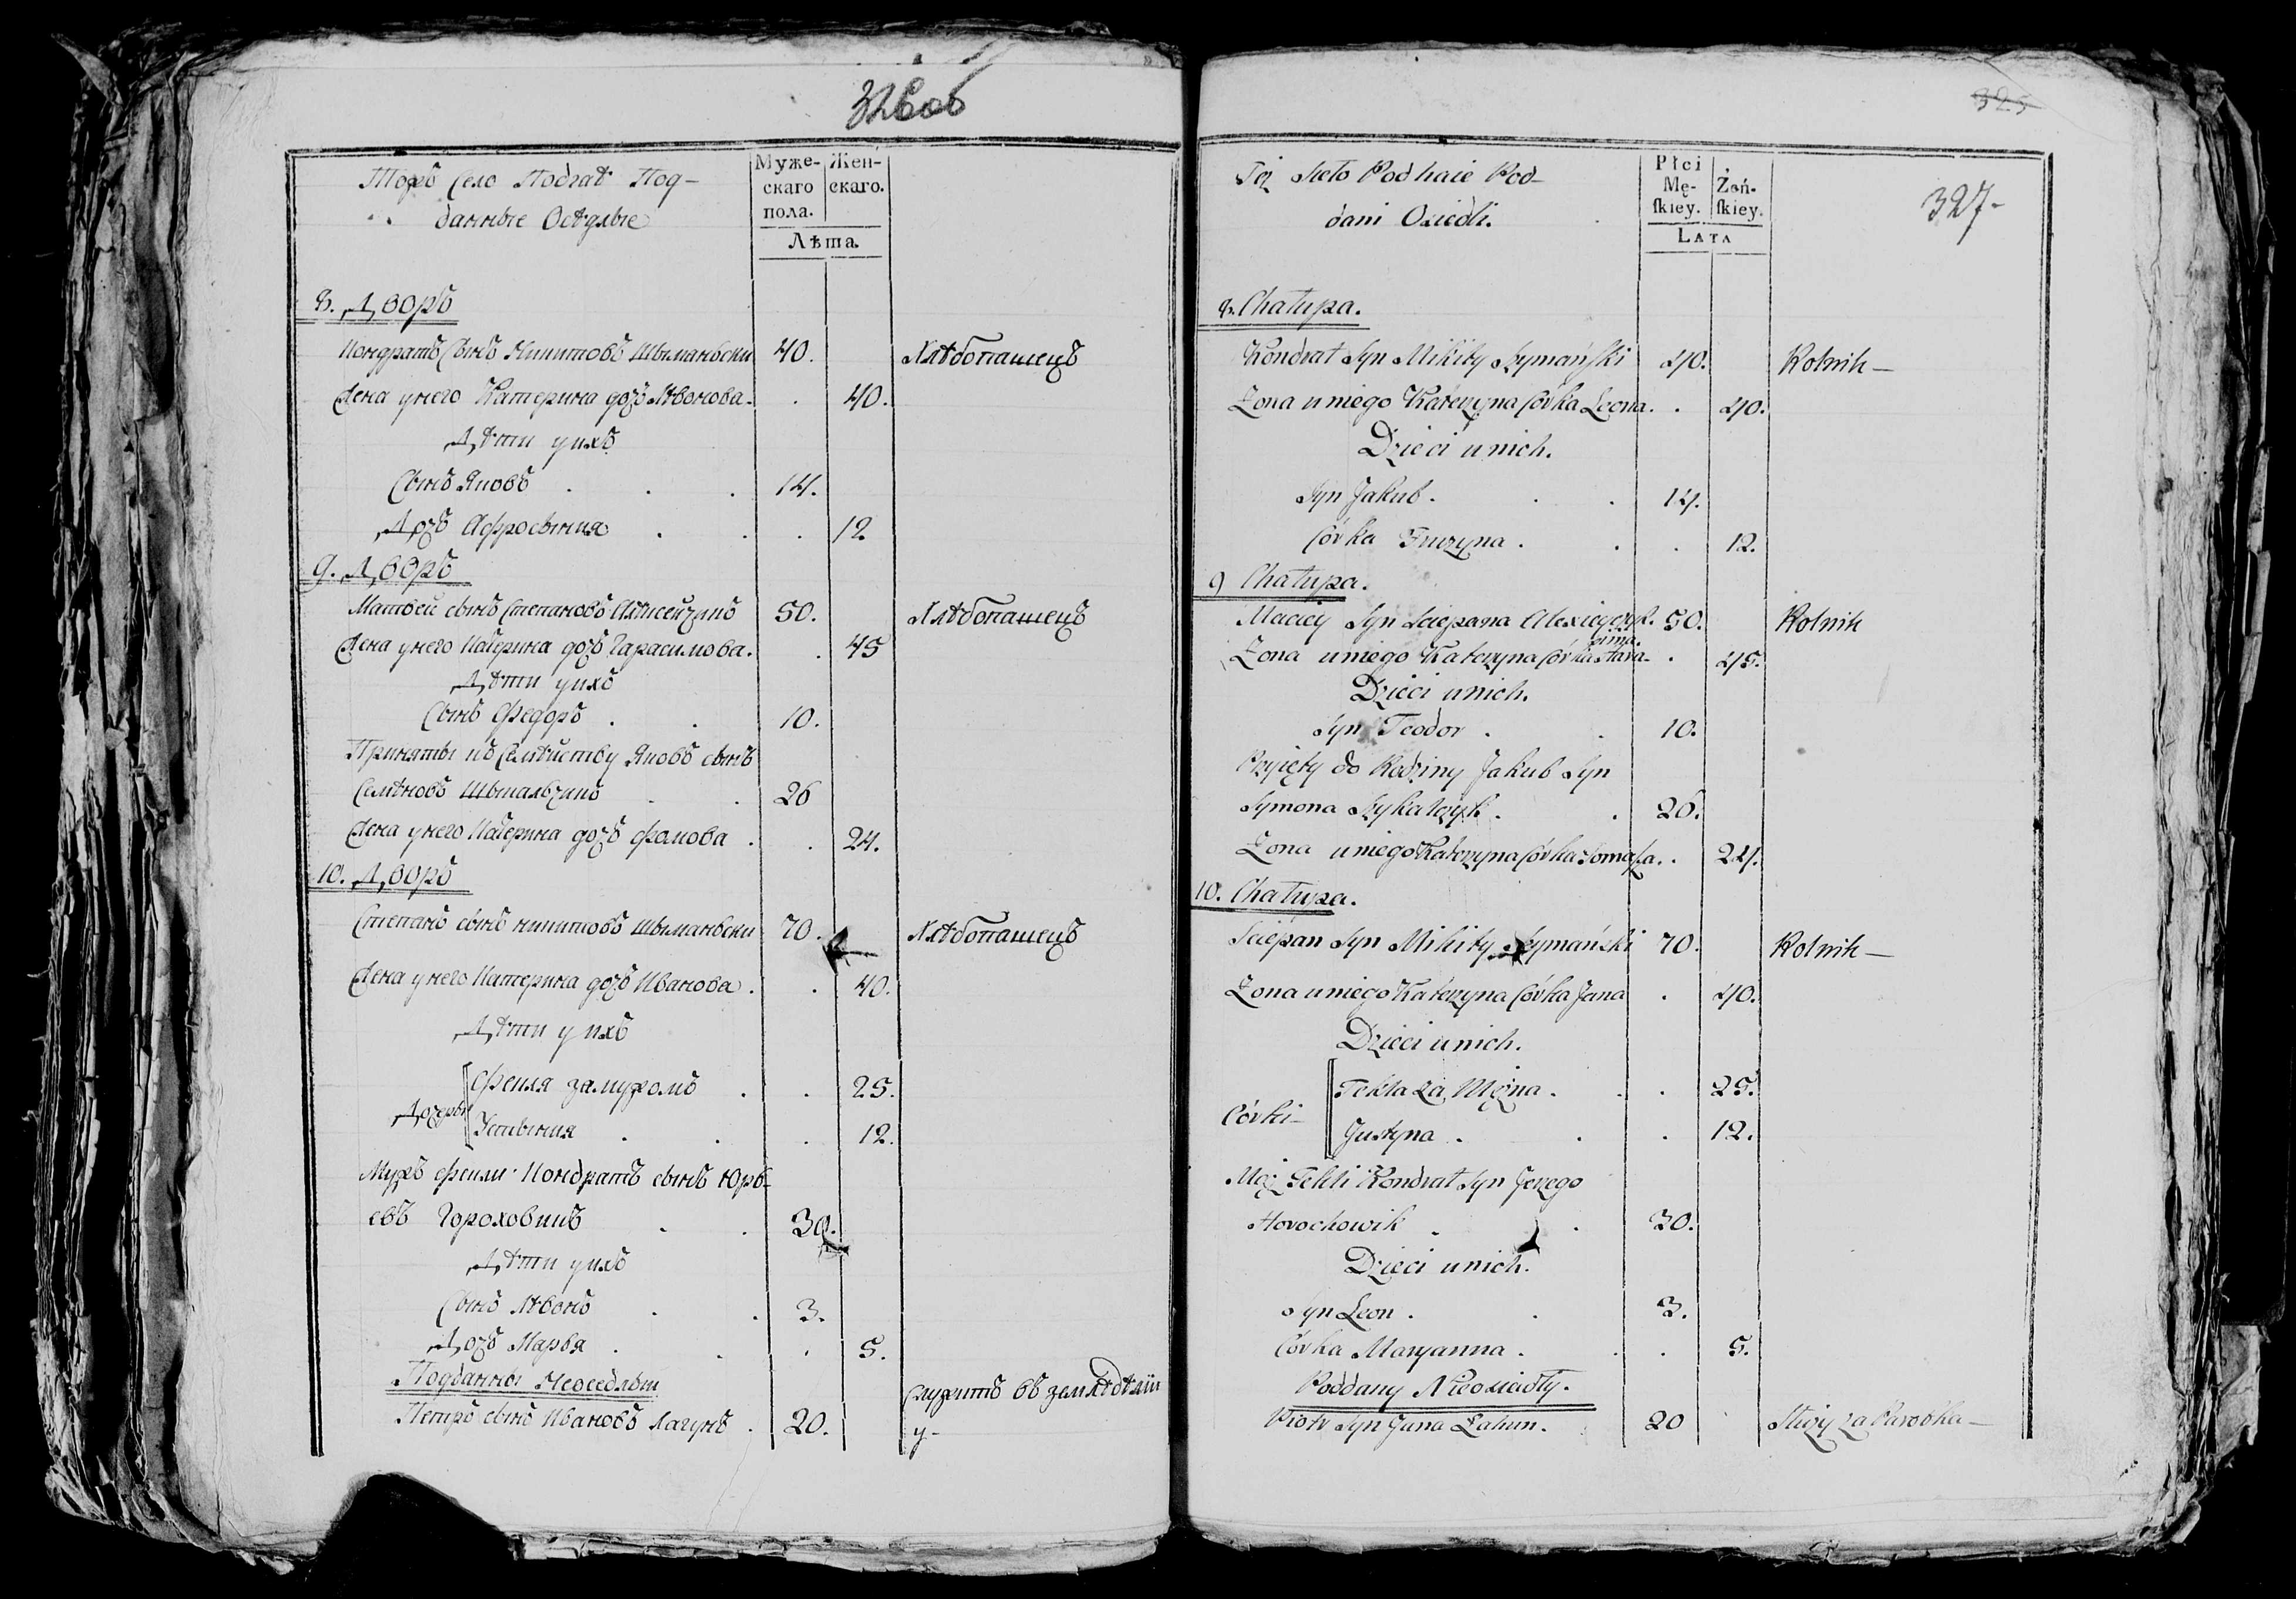 326об
Тожъ Село Подгаѣ Под-
данные Осѣдлые
Муже-
скаго
пола.
Жен-
скаго.
Лѣта.
8. Дворъ
Кондратъ Сынъ Никитовъ Шыманьски 40. Хлѣбопашецъ
Жена у него Катерина дочъ Лѣвонова. . 40.
Дѣти у ихъ
Сынъ Яковъ . . . 14.
Дочъ Афросыния . . . 12.
9. Дворъ
Матѳей сынъ Степановъ 50. Хлѣбопашецъ
Жена у него Катерина дочъ Гарасимова. . 45
Дѣти у ихъ
Сынъ Федоръ . . 10.
Приняты къ Семѣйству Яковъ сынъ
Семѣновъ . . 26
Жена у него Катерина дочъ Фомова . . 24.
10. Дворъ
Степанъ сынъ никитовъ Шыманьски 70. Хлѣбопашецъ
Жена у него Катерина дочъ Иванова . . 40.
Дѣти у ихъ
Дочеры
Фекля замужомъ . . 25.
Устыния . . . 12.
Мужъ Фекли Кондратъ сынъ Юрь-
евъ Гороховикъ . . 30.
Дѣти у ихъ
Сынъ Лѣвонъ . . 3.
Дочъ Марья . . . 5.
Подданны Неоседлыи
Петръ сынъ Ивановъ Лагунъ . 20. служитъ въ земледѣлии
у-
325
327-
Tej Sieło Podhaie Pod-
dani Osiedli.
Płci
Mę-
skiey.
Żeń-
skiey.
Lata
8. Chałupa.
Kondrat Syn Mikity Szymański 40. Rolnik —
Żona u niego Katerzyna Córka Leona. . 40.
Dzieci u nich.
Syn Jakub . . . 14.
Córka Fruzyna . . . 12.
9 Chałupa.
Maciey Syn Sciepana Alexieyczyk. 50. Rolnik
zima.
Żona u niego Katerzyna Córka Hara- . 45.
Dzieci u nich.
Syn Teodor . . 10.
Przyięty do Rodziny Jakub Syn
Symona . . 26.
Żona u niego Katerzyna Córka Tomasza. . 24.
10. Chałupa.
Sciepan Syn Mikity Szymański 70. Rolnik —
Żona u niego Katerzyna Córka Jana . 40.
Dzieci u nich.
Córki
Tekla za Mężna . . . 25.
Justyna . . . 12.
Mąż Tekli Kondrat Syn Jerzego
Horochowik . . 30.
Dzieci u nich.
Syn Leon . . 3.
Córka Maryanna . . . 5.
Poddany Nieosiadły.
Piotr Syn Jana Łahun. 20 Służy za Parobka —